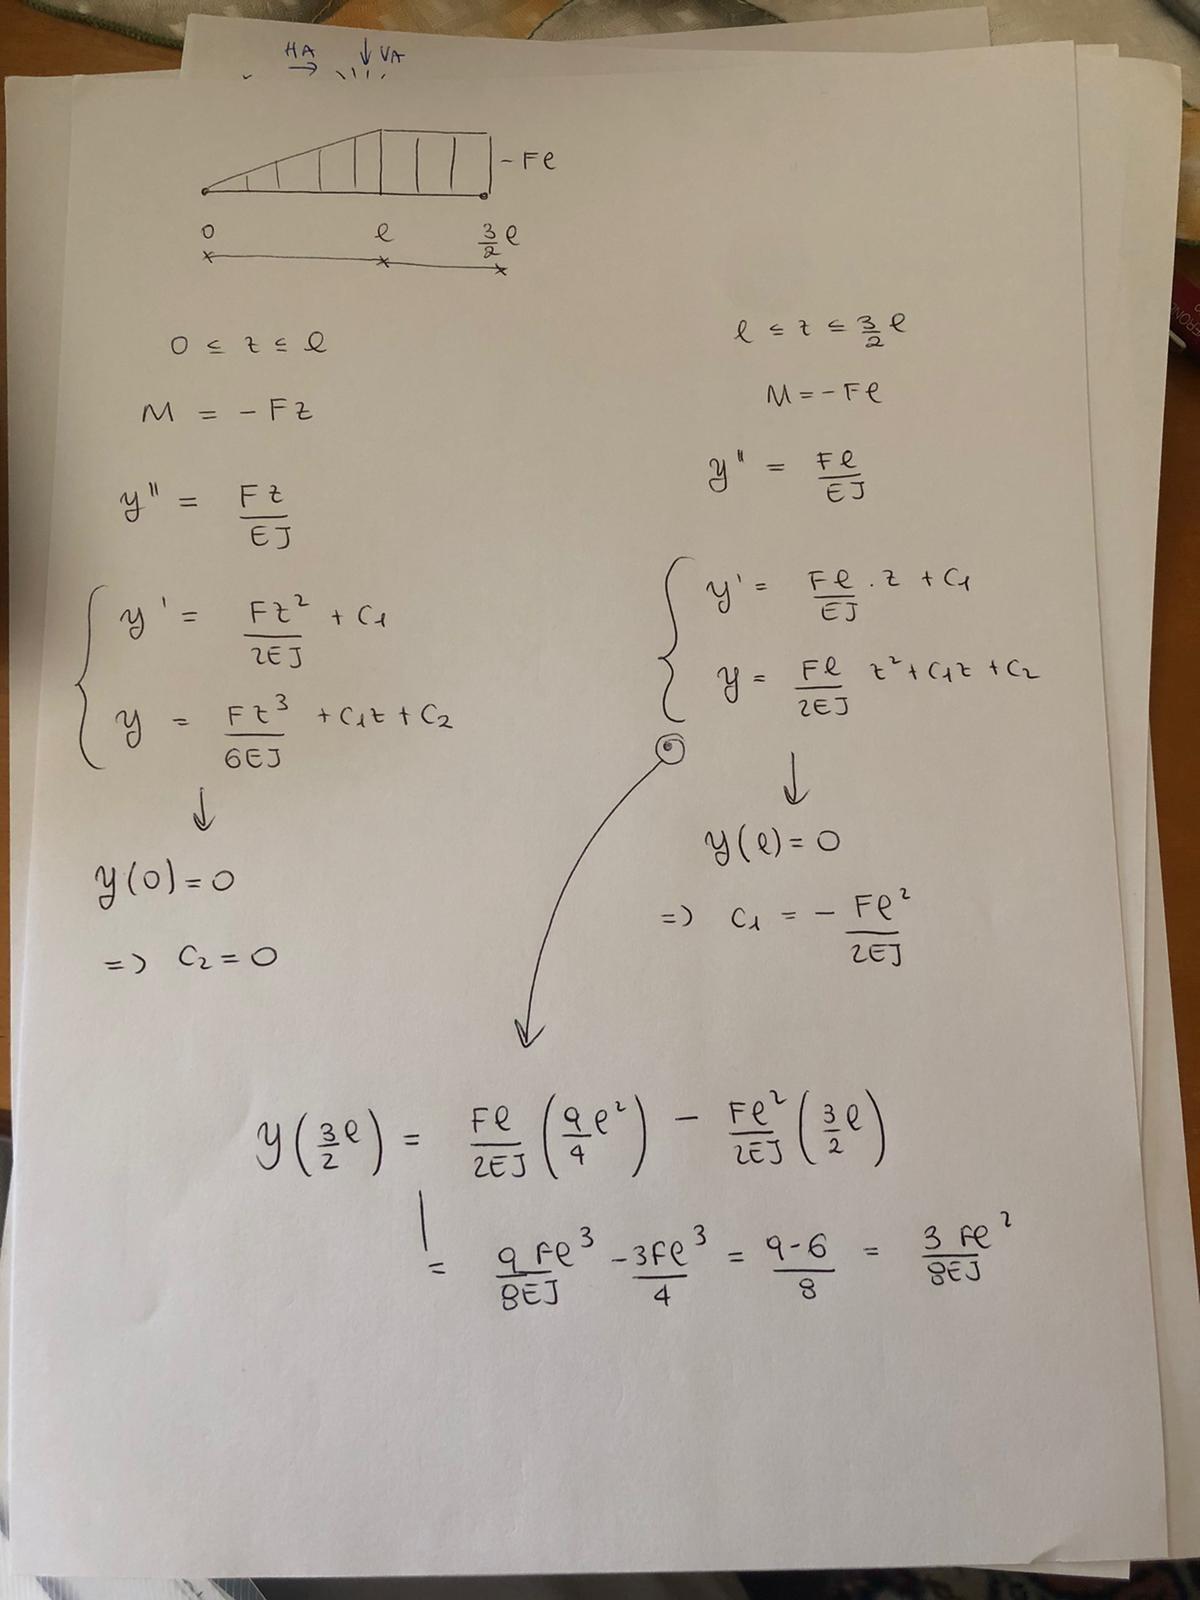 HA VA
- Fl
0 l 3/2 l
0 ≤ z ≤ l
M = - Fz
y'' = Fz/EJ
y' = Fz²/2EJ + C1
y = Fz³/6EJ + C1z + C2
↓
y(0) = 0
=> C2 = 0
l ≤ z ≤ 3/2 l
M = - Fl
y'' = Fl/EJ
y' = Fl/EJ . z + C1
y = Fl/2EJ z² + C1z + C2
↓
y(l) = 0
=> C1 = - Fl²/2EJ
y(3/2 l) = Fl/2EJ (9/4 l²) - Fl²/2EJ (3/2 l)
= 9Fl³/8EJ - 3Fl³/4 = 9-6/8 = 3Fl²/8EJ